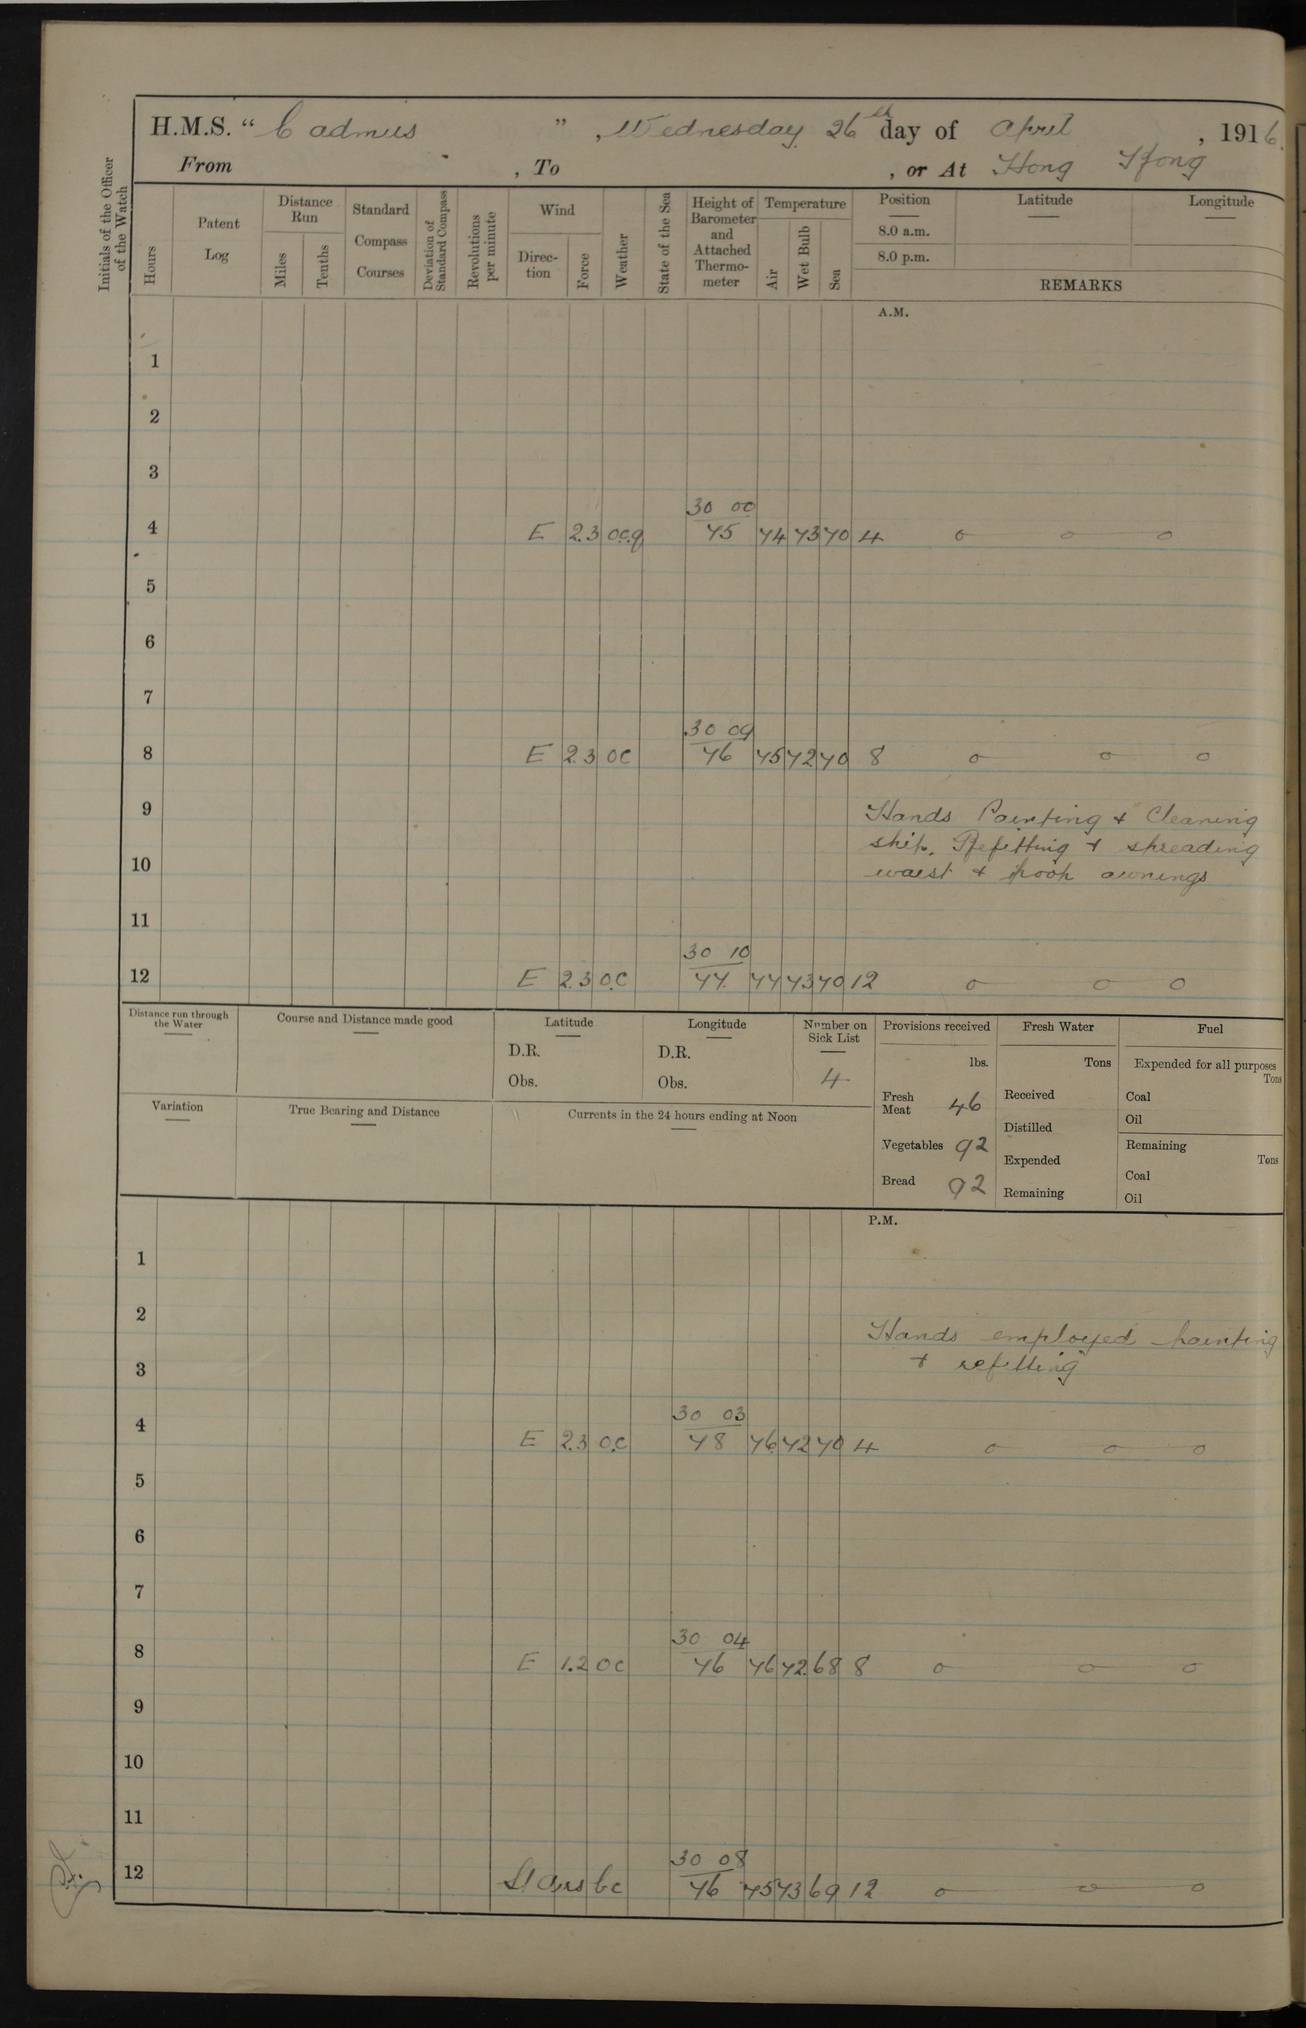 H.M.S. “ Cadmus ” , Wednesday 26th day of April , 1916.
From , To , or At Hong Kong
Initials of the Officer of the Watch
Hours
Patent Log
Distance Run
Miles
Tenths
Standard Compass Courses
Deviation of Standard Compass
Revolutions per minute
Wind
Direction
Force
Weather
State of the Sea
Height of Barometer and Attached Thermometer
Temperature
Air
Wet Bulb
Sea
Position Latitude Longitude
8.0 a.m.
8.0 p.m.
REMARKS
A.M.
1
2
3
30 00
4 E 2.3 o.c.q 75 74 73 70 4 o o o
5
6
7
30 09
8 E 2.3 oc 76 75 72 70 8 o o o
9 Hands Painting + Cleaning
ship. Refitting + spreading
10 waist + poop awnings
11
30 10
12 E 2.3 o.c 77 77 73 70 12 o o o
Distance run through the Water
Course and Distance made good
Latitude
D.R.
Obs.
Longitude
D.R.
Obs.
Number on Sick List
4
Provisions received
lbs.
Fresh Meat 46
Vegetables 92
Bread 92
Fresh Water
Tons
Received
Distilled
Expended
Remaining
Fuel
Expended for all purposes
Tons
Coal
Oil
Remaining
Tons
Coal
Oil
Variation
True Bearing and Distance
Currents in the 24 hours ending at Noon
P.M.
1
2 Hands employed painting
3 + refitting
30 03
4 E 2.3 o.c 78 76 72 70 4 o o o
5
6
7
30 04
8 E 1.2 oc 76 76 72 68 8 o o o
9
10
11
30 08
12 Lt airs bc 76 75 73 69 12 o o o